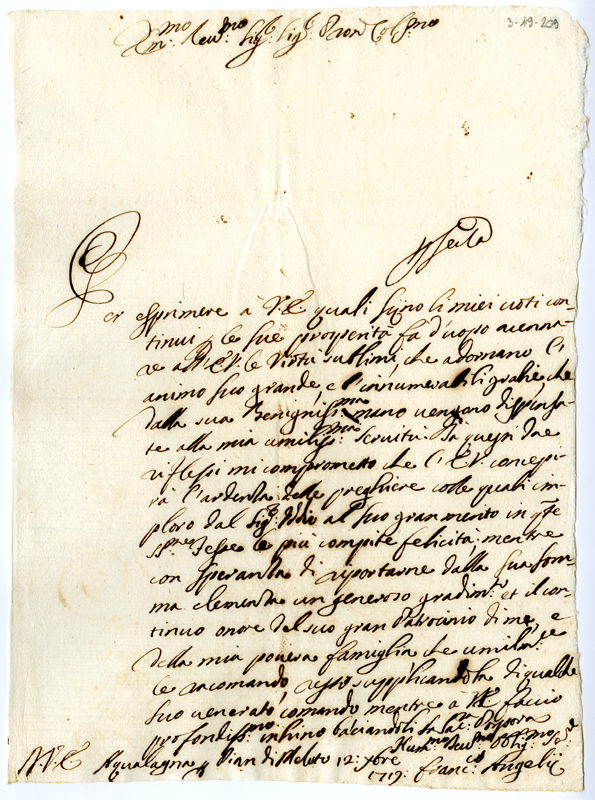 3-19-209
Em.mo Rev.mo Sig.r Sig.r Pron Col.mo
Risposta
Per esprimere a V.E. quali siino li miei voti con-
tinui p le sue prosperità fà d'uopo accenna-
re all'E.V. le Virtù sublimi, che adornano l'
animo suo grande, e l'innumerabili grazie che
dalla sua Benigniss.ma mano vengono dispensa-
te alla mia umiliss.ma servitù. Da questi due
riflessi mi comprometto che l'E.V. concepi-
rà l'ardenza delle preghiere colle quali im-
ploro dal Sig.r Iddio al suo gran merito in q.te
SS.me Feste le più compite felicità; mentre
con speranza di riportarne dalla sua som-
ma clemenza un generoso gradim.to et il con-
tinuo onore del suo gran Patrocinio di me, e
della mia povera famiglia che umilm.te
le racomando, resto supplicandola di qualche
suo venerato comando, mentre a V.E. faccio
profondiss.mo inchino baciandoli la Sac.ra Porpora
Hum.mo Dev.mo Obblig.mo S.re
V.E. Acqualagna p Pian di Meleto 12: Xbre
1719. Franc.co Angelij